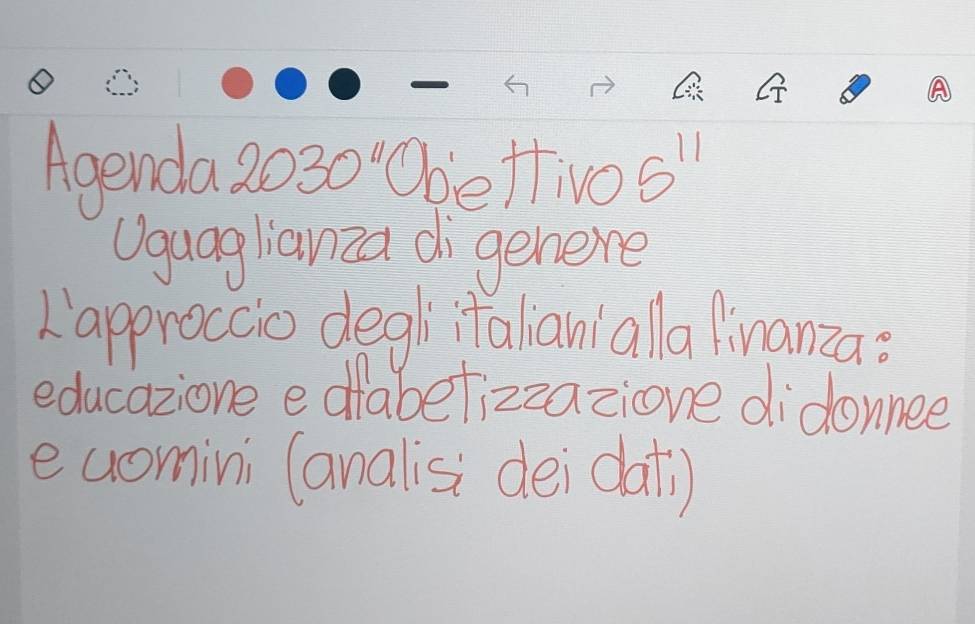 Agenda 2030 "Obiettivo 5"
Uguaglianza di genere
L'approccio degli italiani alla finanza:
educazione e alfabetizzazione di donnee
e uomini (analisi dei dati)